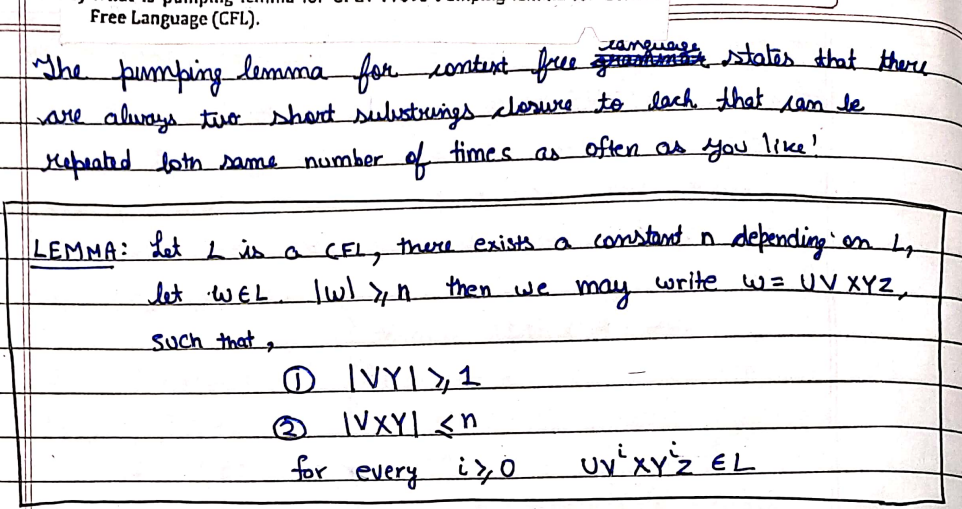 Free Language (CFL).
The pumping lemma for context free language states that there
are always two short substrings closure to each that can be
repeated both same number of times as often as you like!
LEMMA: Let L is a CFL, there exists a constant n depending on L,
let w∈L. |w| ≥ n then we may write w = UVXYZ,
such that,
① |VY| ≥ 1
② |VXY| ≤ n
for every i ≥ 0 UVⁱXYⁱZ ∈ L